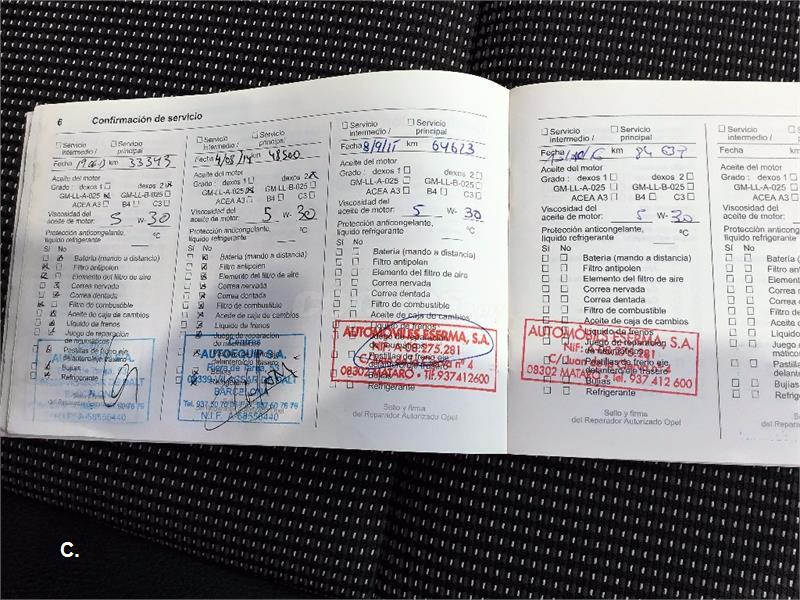 6 Confirmación de servicio
Servicio intermedio / Servicio principal
Fecha km 33343
Aceite del motor
Grado : dexos 1 dexos 2
GM-LL-A-025 GM-LL-B-025
ACEA A3 B4 C3
Viscosidad del
aceite de motor: 5 W- 30
Protección anticongelante,
líquido refrigerante °C
Sí No
Batería (mando a distancia)
Filtro antipolen
Elemento del filtro de aire
Correa nervada
Correa dentada
Filtro de combustible
Aceite de caja de cambios
Líquido de frenos
Juego de reparación
de neumáticos
Pastillas de freno eje
delantero/eje trasero
Bujías
Refrigerante
Servicio intermedio / Servicio principal
Fecha 4/08/14 km 48500
Aceite del motor
Grado : dexos 1 dexos 2
GM-LL-A-025 GM-LL-B-025
ACEA A3 B4 C3
Viscosidad del
aceite de motor: 5 W- 30
Protección anticongelante,
líquido refrigerante °C
Sí No
Batería (mando a distancia)
Filtro antipolen
Elemento del filtro de aire
Correa nervada
Correa dentada
Filtro de combustible
Aceite de caja de cambios
Líquido de frenos
Juego de reparación
AUTOEQUIP S.A.
BARCELONA
N.I.F. A-58550440
Servicio intermedio / Servicio principal
Fecha 8/9/15 km 64623
Aceite del motor
Grado : dexos 1 dexos 2
GM-LL-A-025 GM-LL-B-025
ACEA A3 B4 C3
Viscosidad del
aceite de motor: 5 W- 30
Protección anticongelante,
líquido refrigerante °C
Sí No
Batería (mando a distancia)
Filtro antipolen
Elemento del filtro de aire
Correa nervada
Correa dentada
Filtro de combustible
Aceite de caja de cambios
Líquido de frenos
AUTOMÓVILES ESERMA, S.A.
NIF. A-08.275.281
Pastillas de freno eje
08302 MATARÓ • Tlf. 937 412 600
Refrigerante
Sello y firma
del Reparador Autorizado Opel
Servicio intermedio / Servicio principal
Fecha km 84 637
Aceite del motor
Grado : dexos 1 dexos 2
GM-LL-A-025 GM-LL-B-025
ACEA A3 B4 C3
Viscosidad del
aceite de motor: 5 W- 30
Protección anticongelante,
líquido refrigerante °C
Sí No
Batería (mando a distancia)
Filtro antipolen
Elemento del filtro de aire
Correa nervada
Correa dentada
Filtro de combustible
Aceite de caja de cambios
Líquido de frenos
AUTOMÓVILES ESERMA, S.A.
Juego de reparación
NIF. A-08.275.281
Pastillas de freno eje
delantero/eje trasero
08302 MATARÓ • Tel. 937 412 600
Bujías
Refrigerante
Sello y firma
del Reparador Autorizado Opel
Servicio
intermedio /
Fecha
Aceite del motor
Grado : dexos
GM-LL-A
ACEA
Viscosidad del
aceite de motor
Protección antic
líquido refrigera
Sí No
Batería
Filtro a
Element
Correa
Correa
Filtro d
Aceite
Líquido
Juego
de neu
Pastilla
delante
Bujías
Refrige
del Re
C.